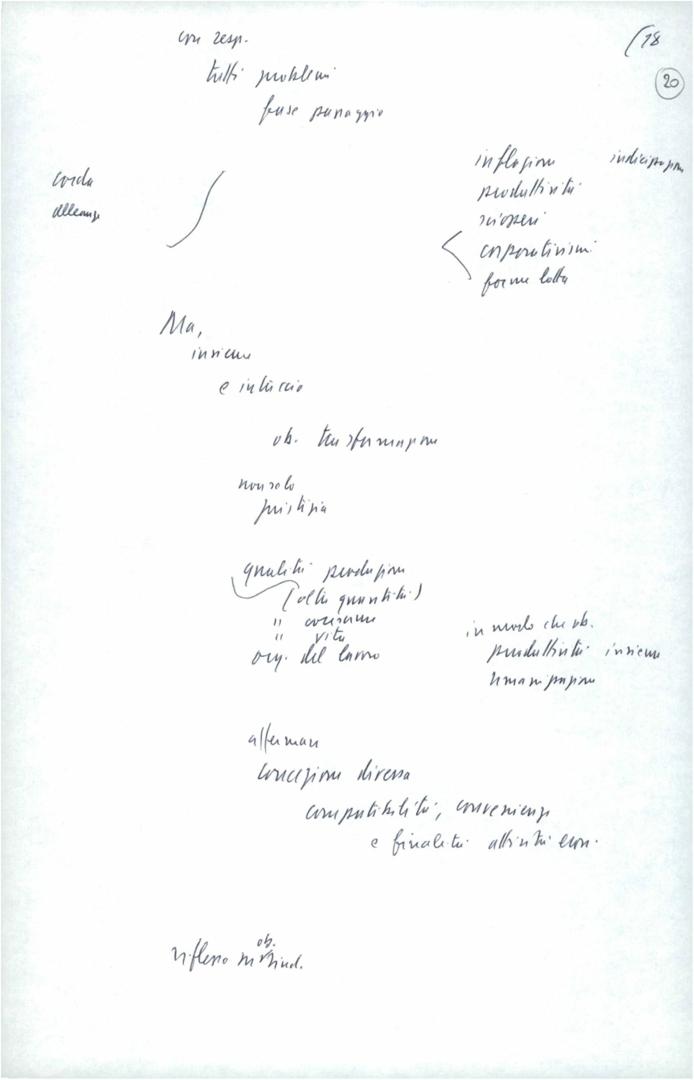 con resp.
(18
20
tutti problemi
fase passaggio
inflazione indicizzazione
produttività
scioperi
corporativismi
forme lotta
corda
alleanze
Ma,
insieme
e intreccio
ob. trasformazione
non solo
giustizia
qualità produzione
(oltre quantità)
" consumi
" vita
org. del lavoro
in modo che ob.
produttività insieme
umanizzazione
affermare
concezione diversa
compatibilità, convenienze
e finalità attività econ.
ob.
riflesso sind.